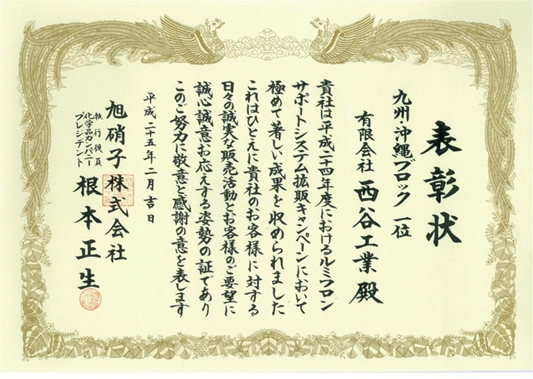 表彰状
九州・沖縄ブロック 一位
有限会社 西谷工業 殿
貴社は平成二十四年度におけるルミフロン
サポートシステム拡販キャンペーンにおいて
極めて著しい成果を収められました
これはひとえに貴社のお客様に対する
日々の誠実な販売活動とお客様のご要望に
誠心誠意お応えする姿勢の証であり
このご努力に敬意と感謝の意を表します
平成二十五年二月吉日
旭硝子株式会社
執行役員
化学品カンパニー
プレジデント
根本正生